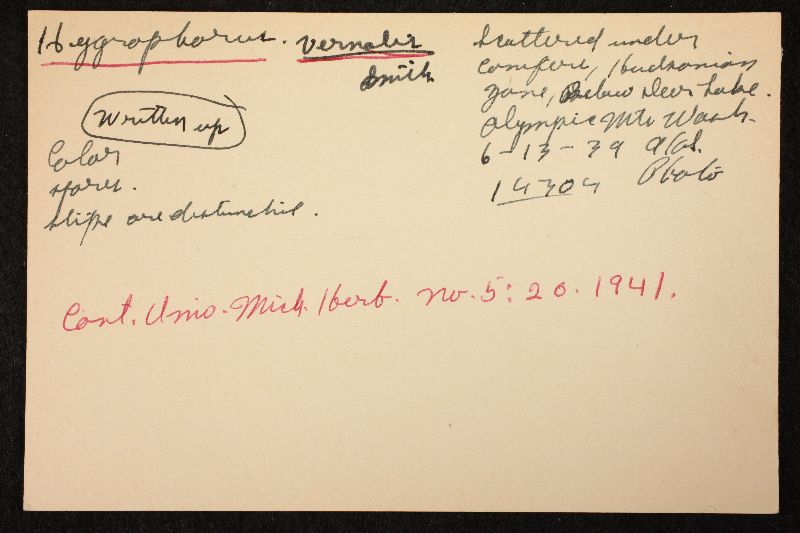 Hygrophorus. vernalis
Smith
Written up
Color
spores.
stipe are distinctive.
Scattered under
conifers, Hudsonian
zone, Below Deer Lake.
Olympic Mts Wash.
6-13-39 a/cal.
14304 Photo
Cont. Univ. Mich. Herb. no. 5: 20. 1941.